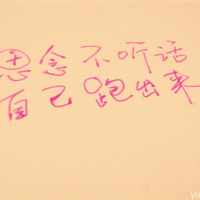 思念不听话
自己跑出来